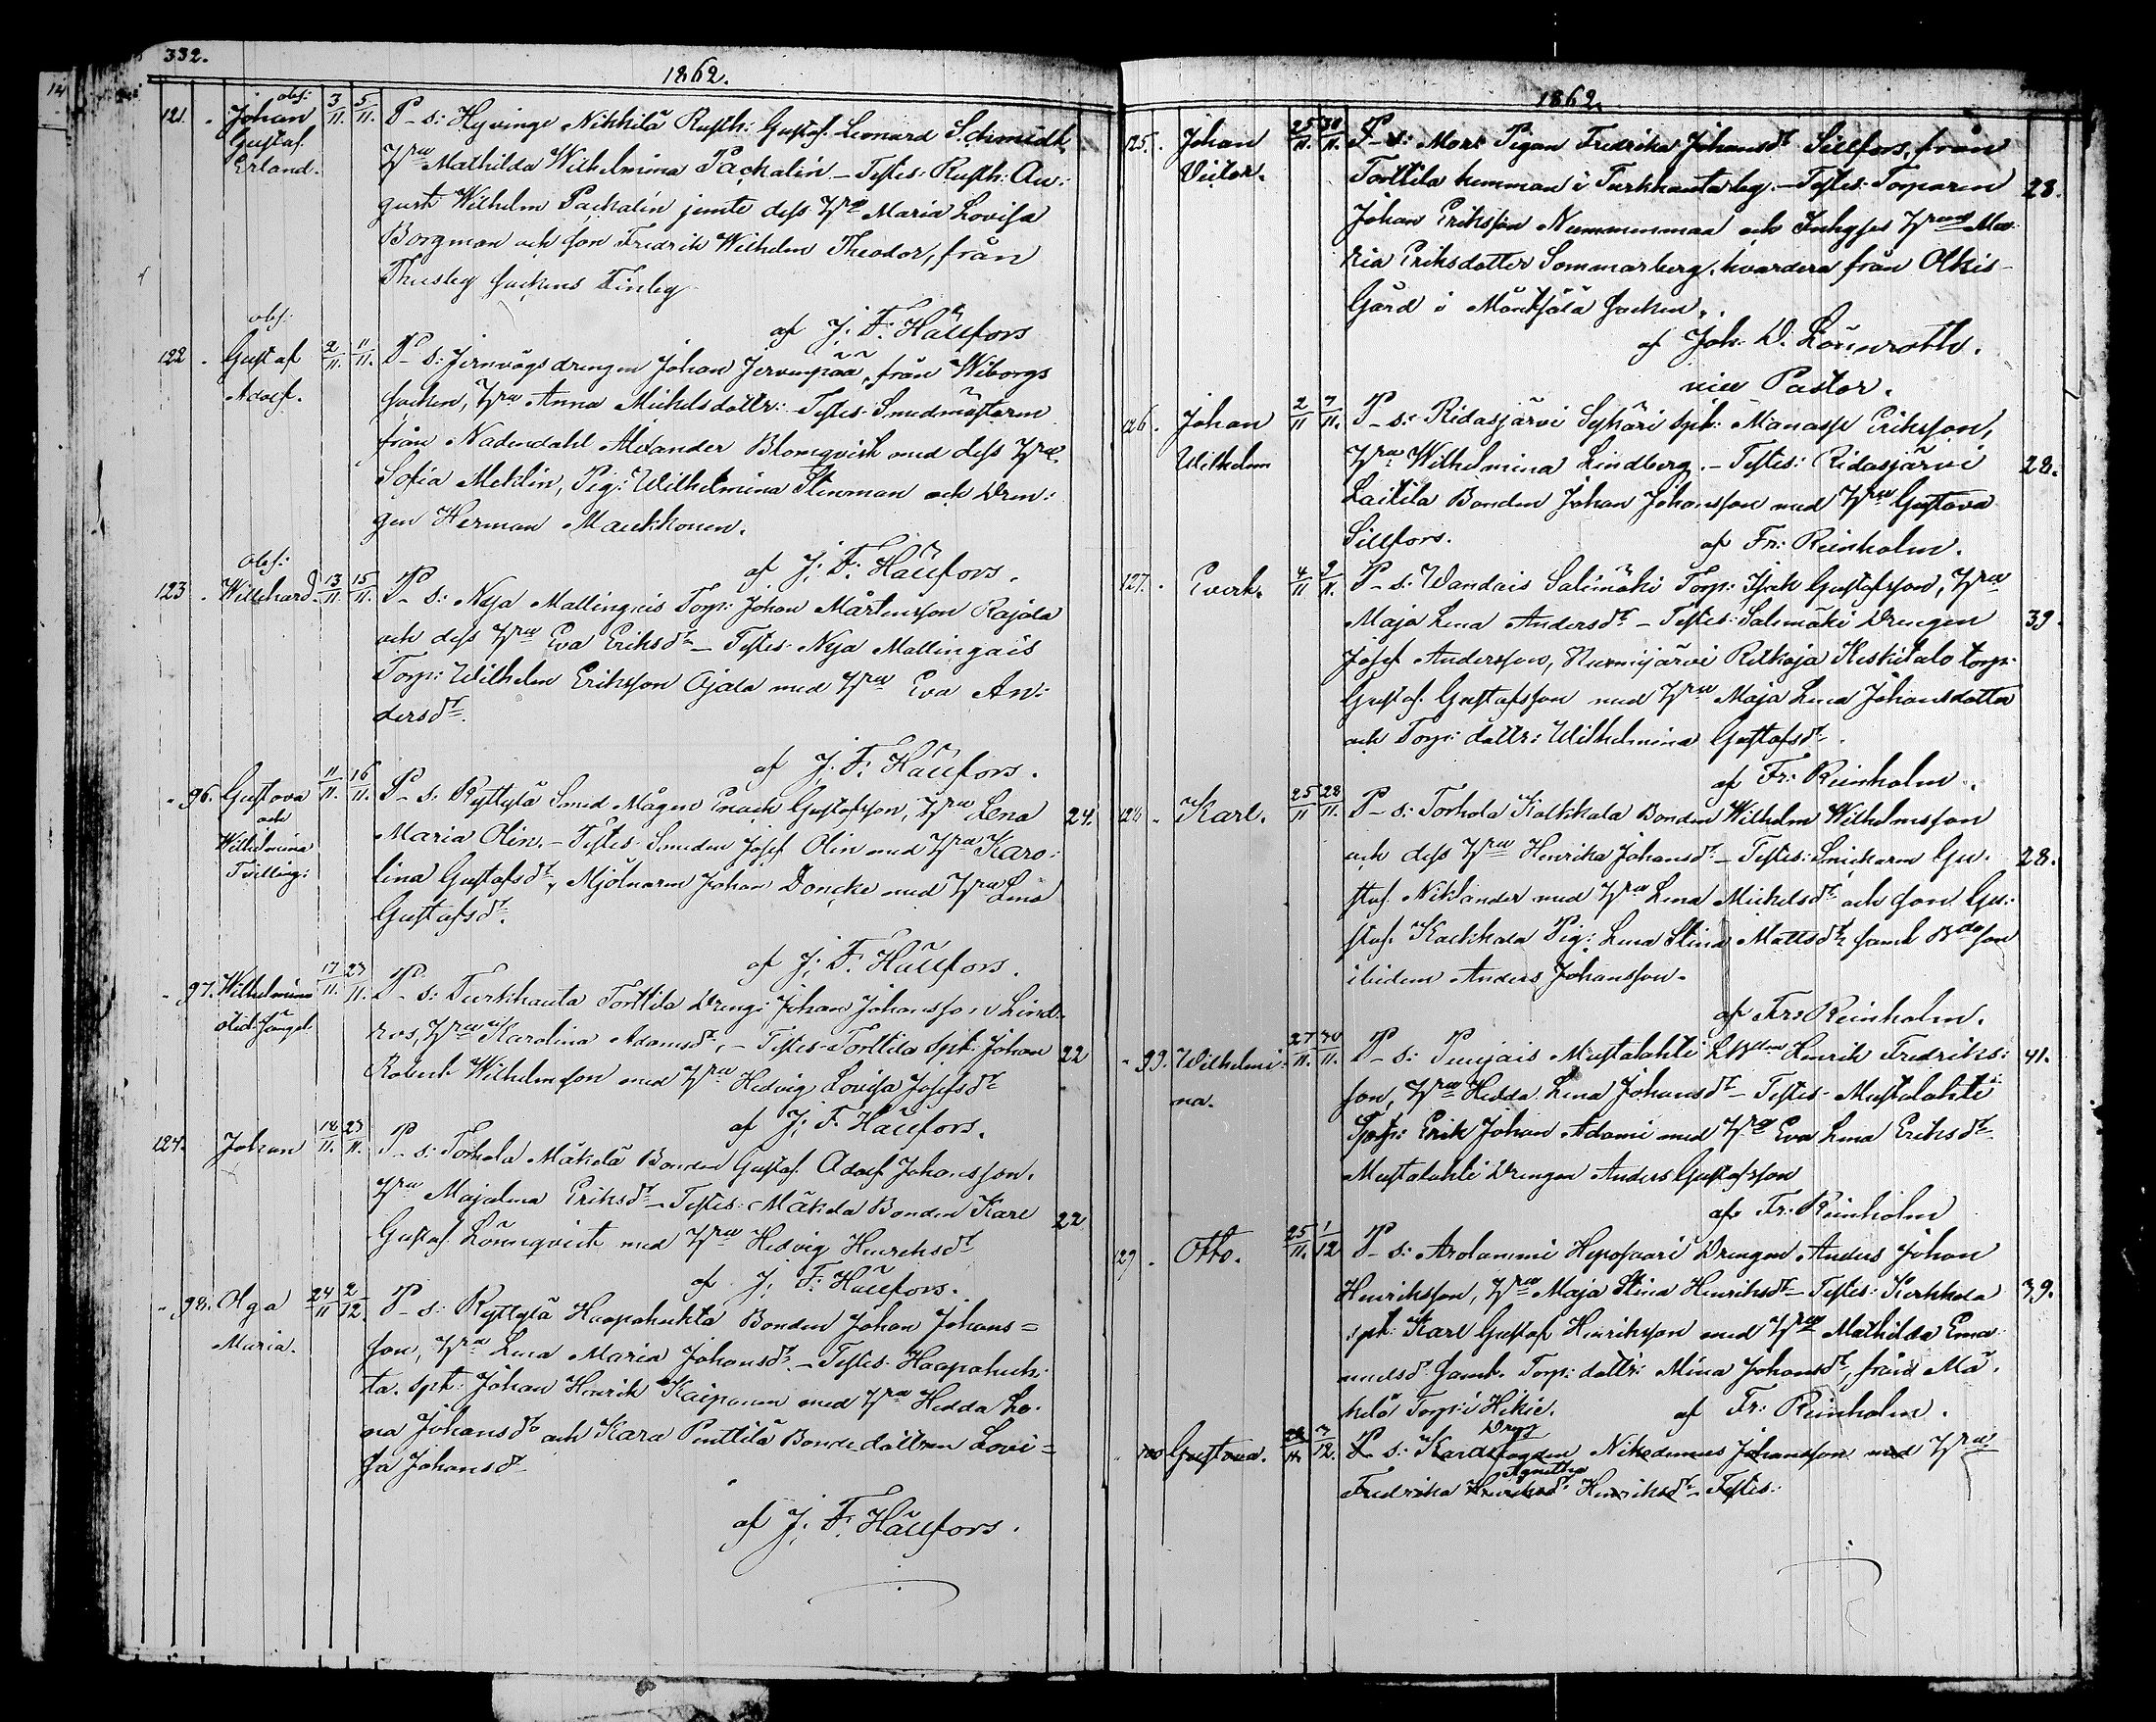 332.
1862.
121. Johan obs: 3/11. 5/11. P- s: Hyvinge Nikkilä Rusth: Gustaf Leonard Schmidt,
Gustaf Hru Mathilda Wilhelmina Pachalin - Testes: Rusth: Au:
Erland. gust Wilhelm Pachalin jemte dess Hru Maria Lovisa
Borgman och son Fredrik Wilhelm Theodor, från
Thusby sockens Finby
af J. F. Hällfors
obs:
122. Gustaf 2/11. 11/11. P- s: Jernvägsdrengen Johan Jervenpää, från Wiborgs
Adolf. socken, Hru Anna Mickelsdotter: Testes: Smedmästaren
från Nadendahl Alexander Blomqvist med dess Hru
Sofia Meklin, Pig: Wilhelmina Stenman och Dren:
gen Herman Maukkonen.
af J. F. Hällfors.
obs:
123. Willehard. 13/11. 15/11. P- s: Nya Mallingais Torp: Johan Mårtensson Rajala
och dess Hru Eva Eriksdr - Testes: Nya Mallingais
Torp: Wilhelm Eriksson Ojala med Hru Eva An:
dersdr.
af J. F. Hällfors.
96. Gustava 11/11. 16/11. P- s: Ryttylä Smed Mågen Enoch Gustafsson, Hru Lena 24.
och Wilhelmina Maria Olin. - Testes: Smeden Josef Olin med Hru Karo:
Tvilling: lina Gustafsdr, Mjölnaren Johan Doncke med Hru Lena
Gustafsdr.
af J. F. Hällfors.
97. Wilhelmina 17/11. 23/11. P- s: Turkhauta Torttila Dreng: Johan Johansson Lind-
ros, Hru Karolina Adamsdr, - Testes: Torttila Spk: Johan 22
Robert Wilhelmsson med Hru Hedvig Lovisa Josefsdr
af J. F. Hällfors.
124. Johan 18/11. 23/11. P- s: Torhola Mäkelä Bonden Gustaf Adolf Johansson,
Hru Majalena Eriksdr - Testes: Mäkelä Bonden Karl 22
Gustaf Lönnqvist med Hru Hedvig Henriksdr
af J. F. Hällfors.
98. Olga 24/11 2/12. P- s: Ryttylä Haapahuhta Bonden Johan Johans=
Maria. son, Hru Lena Maria Johansdr. - Testes: Haapahuh:
ta. spk: Johan Henrik Kaiponen med Hru Hedda Le-
na Johansdr och Kara Penttilä Bonde dottren Lovi=
sa Johansdr
af J. F. Hällfors.
1862.
125. Johan 25/11. 30/11. P- s: Mom Pigan Fredrika Johansdr Sillfors, från
Victor. Torttila hemman i Turkhauta by. - Testes: Torparen 28.
Johan Eriksson Nummenmaa och Inhyses Hrun Ma-
ria Eriksdotter Sommarberg, hvardera från Olkis-
Gård i Mäntsälä socken.
af Joh. D. Lönnroth.
vice Pastor.
126. Johan 2/11 7/11. P- s: Ridasjärvi Sykäri spk: Manasse Eriksson,
Wilhelm Hru Wilhelmina Lindberg. - Testes: Ridasjärvi 28.
Laitila Bonden Johan Johansson med Hru Gustava
Sillfors.
af Fr: Reinholm.
127. Evert. 4/11 9/11. P- s: Wandais Salimäki Torp: Isak Gustafsson, Hru
Maja Lena Andersdr - Testes: Salimäki Drengen 39.
Josef Andersson, Nurmijärvi Ritkoja Keskitalo torp:
Gustaf Gustafsson med Hru Maja Lena Johansdotter
och Torp: dottr: Wilhelmina Gustafsdr.
af Fr: Reinholm.
128. Karl. 25/11 28/11. P- s: Torhola Kalkkala Bonden Wilhelm Wilhelmsson
och dess Hru Henrika Johansdr - Testes: Snickaren Gu: 28.
staf Niklander med Hru Lena Mickelsdr och son Gu:
staf. Kalkkala Pig: Lena Stina Mattsdr samt Bdeson
ibidem Anders Johansson.
af Fr: Reinholm.
99. Wilhelmi 27/11. 30/11. P- s: Punjais Mustalahti Henrik Fredriks: 41.
na. son, Hru Hedda Lena Johansdr - Testes: Mustalahti
Erik Johan Adami med Hru Eva Lena Eriksdr
Mustalahti Drengen Anders Gustafsson
af Fr. Reinholm
129. Otto. 25/11. 1/12 P- s: Arolammi Heposaari Drengen Anders Johan
Henriksson, Hru Maja Stina Henriksdr - Testes: Kerkkola 39.
spk: Karl Gustaf Henriksson med Hru Mathilda Ema
nuelsdr samt Torp: dottr: Mina Johansdr, från Mä-
kelä Torp: i Hikiä.
af Fr: Reinholm.
100 Gustava. 28/11 7/12. P- s: Nikodemus Johansson med Hru
Fredrika Agnetha Henriksdr - Testes: